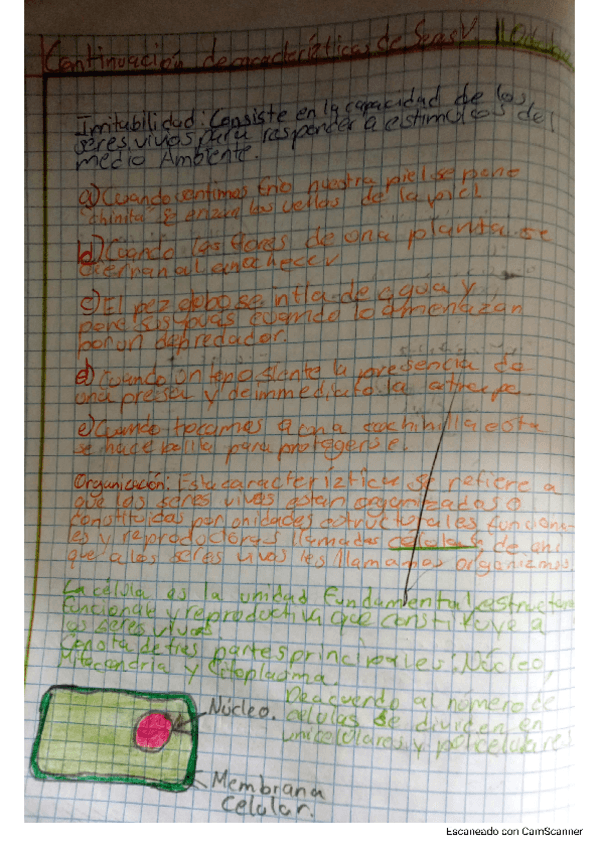 Continuación de características de Seres V.
Irritabilidad: Consiste en la capacidad de los
seres vivos para responder a estimulos del
medio Ambiente.
a) Cuando sentimos frio nuestra piel se pone
"chinita" se enzan los vellos de la piel
b) Cuando las flores de una planta se
cierran al anochecer
c) El pez globo se infla de agua y
pone sus puas cuando lo amenazan
por un depredador.
d) Cuando un siente la presencia de
una presa y de immediato la atrapa
e) Cuando tocamos a una cochinilla esta
se hace bolita para protegerse.
Organización: Esta caracteríztica se refiere a
que los seres vivos estan organizados o
constituidas por unidades estructurales funciona-
les y reproductoras llamadas células de ahi
que a los seres vivos les llamamos organizmos.
La célula es la unidad fundamental, estructura
funcional y reproductiva que constituye a
los seres vivos.
Consta de tres partes principales: Núcleo,
Mitocondria y Citoplasma.
Núcleo.
Deacuerdo al número de
células se dividen en
unicelulares y policelulares
Membrana
Celular.
Escaneado con CamScanner